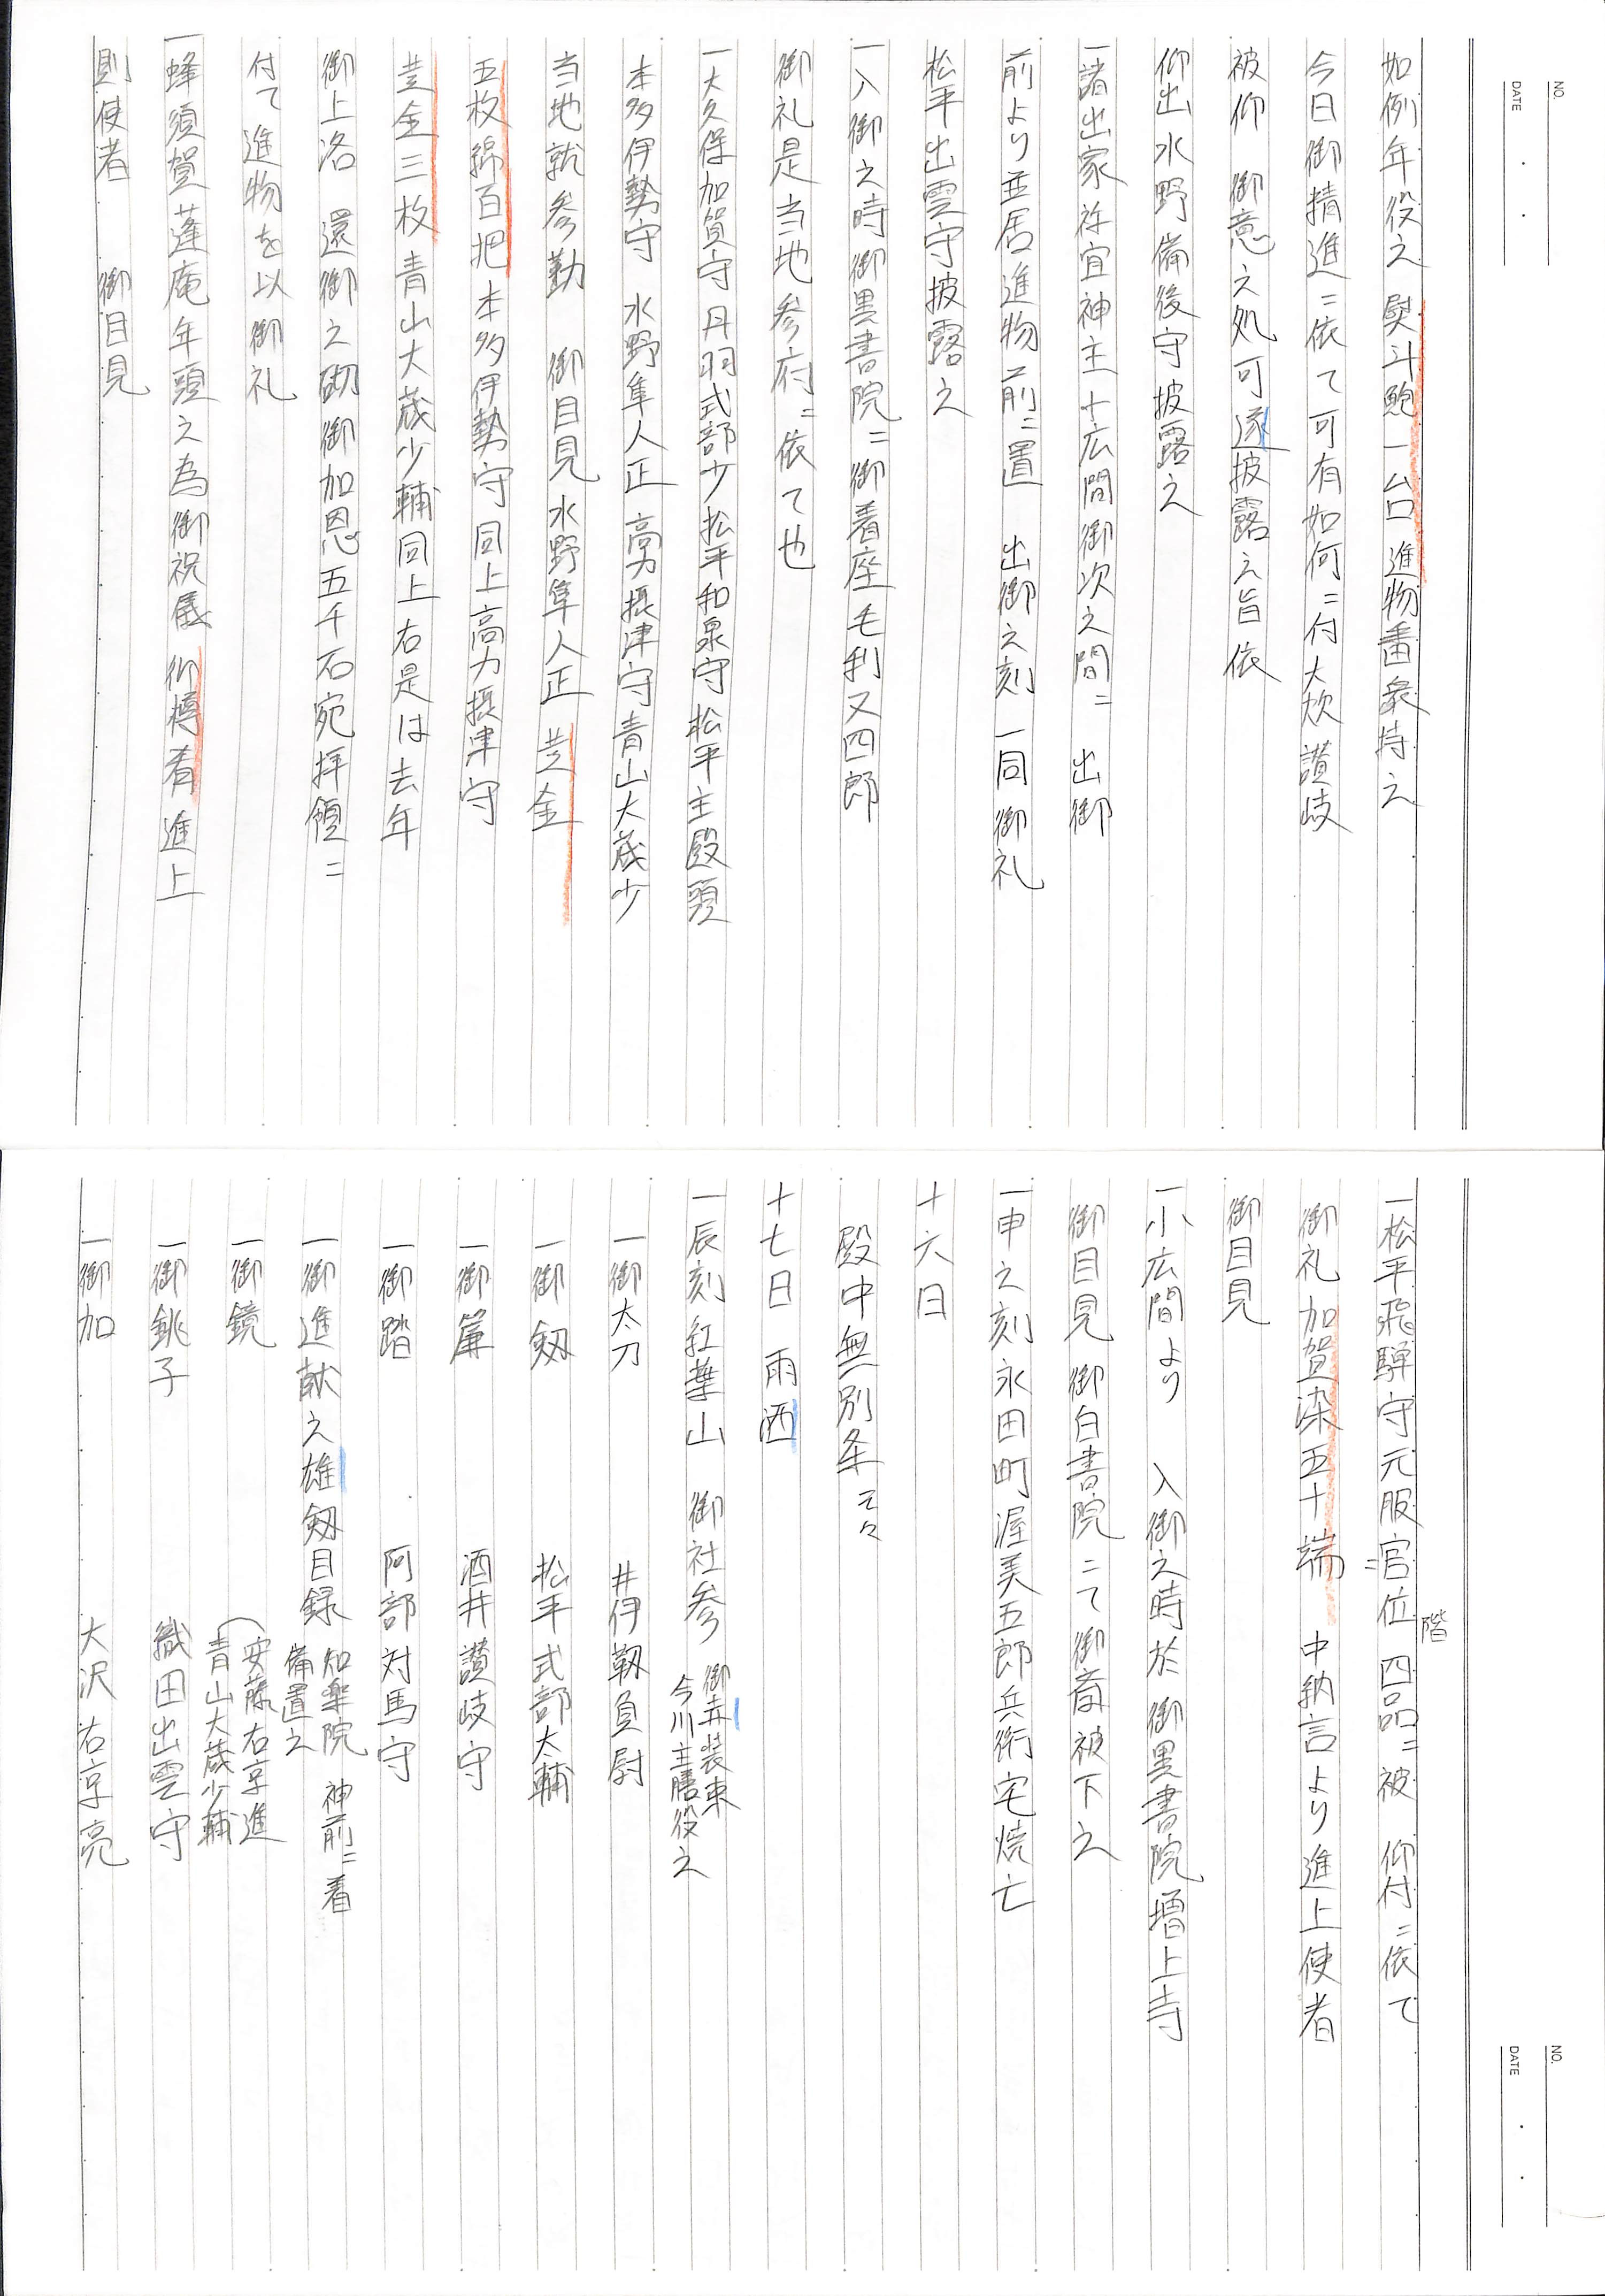 NO.
DATE
如例年役之 熨斗鮑一台 進物番衆持之
今日御精進ニ依て可有如何ニ付大炊 讃岐
被仰 御意之処可遂披露之旨依
仰出水野備後守披露之
一諸出家祢宜神主十広間御次之間ニ 出御
前より並居進物前ニ置 出御之刻 一同御礼
松平出雲守披露之
一入御之時御黒書院ニ御着座毛利又四郎
御礼是当地参府ニ依て也
一大久保加賀守 丹羽式部少 松平和泉守 松平主殿頭
本多伊勢守 水野隼人正 高力摂津守 青山大蔵少
当地就参勤 御目見水野隼人正 黄金
五枚綿百把 本多伊勢守 同上高力摂津守
黄金三枚 青山大蔵少輔同上右是は去年
御上洛 還御之砌御加恩五千石宛拝領ニ
付て進物を以御礼
一蜂須賀蓬庵年頭之為御祝儀 御樽肴進上
則使者 御目見
NO.
DATE
一松平飛騨守元服官位ニ四品ニ被 仰付ニ依て
階
御礼 加賀染五十端 中納言より進上使者
御目見
一小広間より 入御之時於 御黒書院増上寺
御目見 御白書院ニて御斎被下之
一申之刻永田町渥美五郎兵衛宅焼亡
十六日
殿中無別条云々
十七日 雨洒
一辰刻紅葉山 御社参 御弄装束
今川主膳役之
一御太刀 井伊靱負尉
一御剱 松平式部太輔
一御簾 酒井讃岐守
一御踏 阿部対馬守
一御進献之雄剱目録 知楽院 神前ニ着
備置之
一御鏡 安藤右京進
青山大蔵少輔
一御銚子 織田出雲守
一御加 大沢右京亮